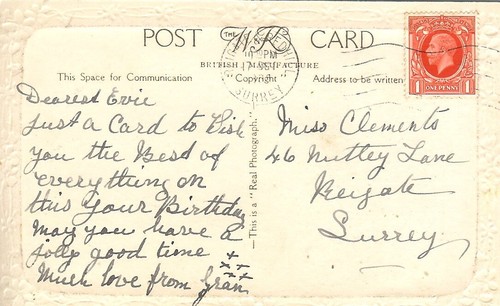 POST THE WPS CARD
BRITISH MANUFACTURE
This Space for Communication
Copyright
Address to be written
SURREY
ONE PENNY
1 1
Dearest Evie
Just a Card to Wish
you the Best of
everything on
this your Birthday
may you have a
jolly good time
Much love from Gran
x x x x x
This is a "Real Photograph."
Miss Clements
46 Nutley Lane
Reigate
Surrey